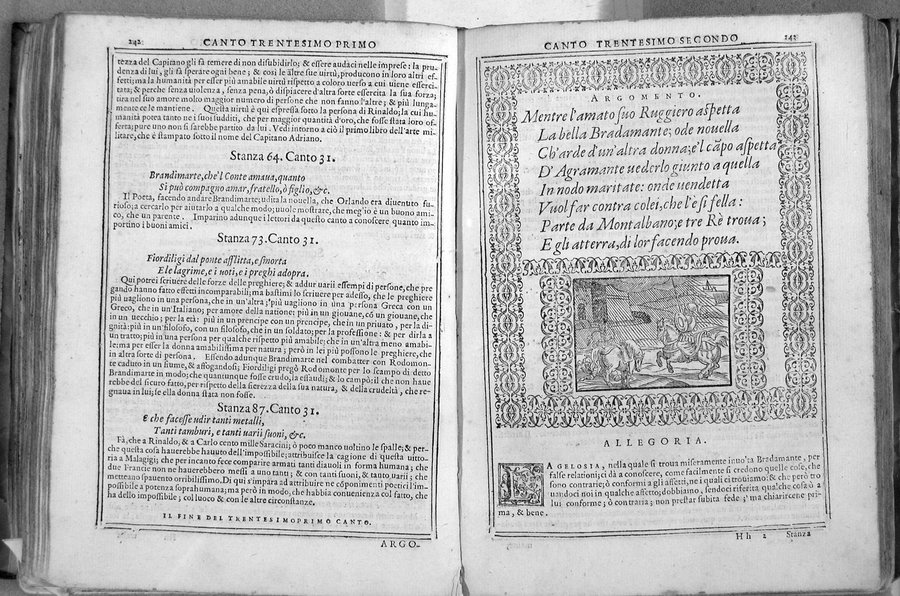 242
CANTO TRENTESIMO PRIMO
tezza del Capitano gli fà temere di non disubidirlo; & essere audaci nelle imprese: la pru-
denza di lui, gli fà sperare ogni bene; & così le altre sue uirtù, producono in loro altri ef-
fetti; ma la humanità per esser più amabile uirtù rispetto a coloro uerso a cui uiene essercitata
tata; & perche senza uiolenza, senza pena, ò dispiacere d'altra sorte essercita la sua forza;
tira nel suo amore molto maggior numero di persone che non fanno l'altre; & più lunga-
mente ce le mantiene. Questa uirtù è quì espressa sotto la persona di Rinaldo; la cui hu-
manità potea tanto ne i suoi sudditi, che per maggior quantità d'oro, che fosse stata loro of-
ferta; pure uno non si sarebbe partito da lui. Vedi intorno a ciò il primo libro dell'arte mi-
litare, che è stampato sotto il nome del Capitano Adriano.
Stanza 64. Canto 31.
Brandimarte, che'l Conte amaua, quanto
Si può compagno amar, fratello, ò figlio, &c.
Il Poeta, facendo andare Brandimarte; udita la nouella, che Orlando era diuenuto fu-
rioso; a cercarlo per aiutarlo a qualche modo; uuole mostrare, che meglio è un buono ami-
co, che un parente. Imparino adunque i lettori da questo canto a conoscere quanto im-
portino i buoni amici.
Stanza 73. Canto 31.
Fiordiligi dal ponte afflitta, e smorta
E le lagrime, e i uoti, e i preghi adopra.
Qui potrei scriuere delle forze delle preghiere; & addur uarii essempi di persone, che pre
gando hanno fatto effetti incomparabili; ma bastimi lo scriuere per adesso, che le preghiere
più uagliono in una persona, che in un'altra; più uagliono in una persona Greca con un
Greco, che in un'Italiano; per amore della natione: più in un giouane, cõ un giouane, che
in un uecchio; per la età: più in un prencipe con un prencipe, che in un priuato, per la di-
gnità: più in un filosofo, con un filosofo, che in un soldato; per la professione: & per dirla a
un tratto; più in una persona per qualche rispetto più amabile; che in un'altra meno amabi-
le: ma per esser la donna amabilissima per natura; però in lei più possono le preghiere, che
in altra sorte di persona. Essendo adunque Brandimarte nel combatter con Rodomon-
te caduto in un fiume, & affogandosi; Fiordiligi pregò Rodomonte per lo scampo di detto
Brandimarte in modo; che quantunque fosse crudo, la essaudì; & lo campò: il che non haue
rebbe del sicuro fatto, per rispetto della fierezza della sua natura, & della crudeltà, che re-
gnaua in lui; se ella donna stata non fosse.
Stanza 87. Canto 31.
E che facesse udir tanti metalli,
Tanti tamburi, e tanti uarii suoni, &c.
Fà, che a Rinaldo, & a Carlo cento mille Saracini; ò poco manco uoltino le spalle; & per-
che questa cosa hauerebbe hauuto dell'impossibile; attribuisce la cagione di questa uitto-
ria a Malagigi; che per incanto fece comparire armati tanti diauoli in forma humana; che
due Francie non ne hauerebbero messi a uno tanti; & con tanti suoni, & tanto uarii; che
metteano spauento orribilissimo. Di qui s'impara ad attribuire ne cõponimenti poetici l'im-
possibile a potenza soprahumana; ma però in modo, che habbia conuenienza col fatto, che
ha dello impossibile; col luogo & con le altre circonstanze.
IL FINE DEL TRENTESIMOPRIMO CANTO.
ARGO-
CANTO TRENTESIMO SECONDO
243
ARGOMENTO.
Mentre l'amato suo Ruggiero aspetta
La bella Bradamante; ode nouella
Ch'arde d'un'altra donna; e'l cãpo aspetta
D'Agramante uederlo giunto a quella
In nodo maritale: onde uendetta
Vuol far contra colei, che l'è sì fella:
Parte da Montalbano; e tre Rè troua;
E gli atterra, di lor facendo proua.
ALLEGORIA.
LA GELOSIA, nella quale si troua miseramente inuolta Bradamante, per
false relationi; ci dà a conoscere, come facilmente si credono quelle cose, che
sono contrarie; ò conformi a gli affetti, ne i quali ci trouiamo: & che però tro
uandoci noi in qualche affetto; dobbiamo, sendoci riferita qualche cosa ò a
lui conforme; ò contraria; non prestar subita fede; ma chiarircene pri-
ma, & bene.
Hh 2 Stanza